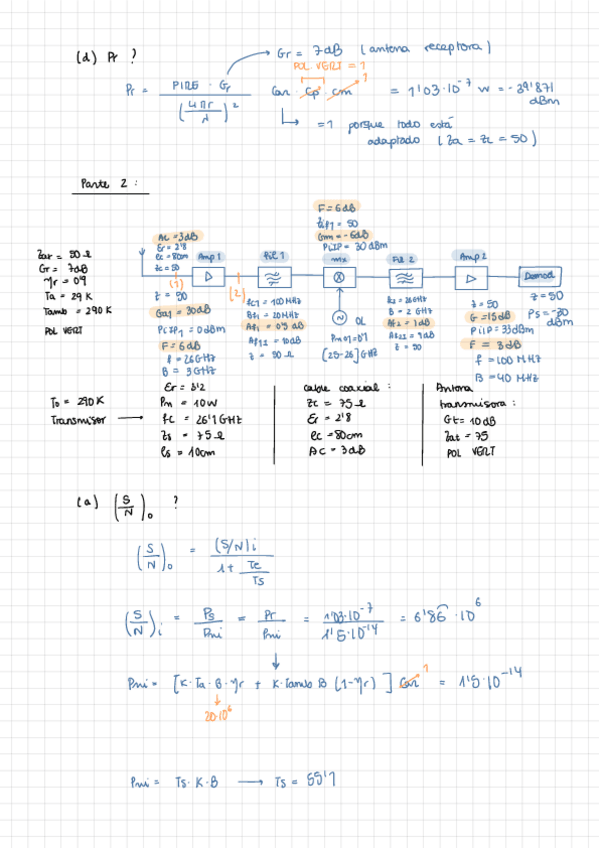 (d) Pr ?
Gr = 7dB (antena receptora)
POL. VERT = 1
Pr = PIRE · Gr / (4πr/λ)² Car · Cp · cm = 1'03·10⁻⁷ w = -39'871 dBm
1
=1 porque todo está
adaptado (Za = ZL = 50)
Parte 2 :
Zar = 50 Ω
Gr = 7dB
ηr = 0'9
Ta = 29 K
Tamb = 290K
POL VERT
AC = 3dB
Er = 2'8
lc = 80cm
Zc = 50
(1)
Amp 1
(2)
Z = 50
Ga1 = 30dB
P1 = 0dBm
F = 6dB
f = 26GHz
B = 3GHz
Fil 1
fc1 = 100MHz
Bf1 = 20MHz
Af1 = 0'5 dB
= 10dB
Z = 50 Ω
F = 6dB
= 50
Gm = -6dB
PiIP = 30dBm
mx
OL
[25-26] GHz
Fil 2
f2 = 26GHz
B = 2 GHz
Af2 = 1dB
= 9dB
Z = 50
Amp 2
Z = 50
G = 15dB
PiIP = 33dBm
F = 3dB
f = 100MHz
B = 40 MHz
Demod
Z = 50
Ps = -30 dBm
To = 290K
Transmisor
Er = 3'2
Pm = 10W
fc = 26'1GHz
Zs = 75 Ω
ls = 10cm
Cable coaxial :
Zc = 75 Ω
Er = 2'8
lc = 80cm
AC = 3dB
Antena
transmisora :
Gt = 10dB
Zat = 75
POL VERT
(a) (S/N)o ?
(S/N)o = (S/N)i / 1 + Te/Ts
(S/N)i = Ps/Pni = Pr/Pni = 1'03·10⁻⁷ / 1'5·10⁻¹⁴ = 6'86 · 10⁶
Pni = [K·Ta·B·ηr + K·Tamb B (1-ηr)] Car = 1'5·10⁻¹⁴
1
20·10⁶
Pni = Ts·K·B → Ts = 55'1